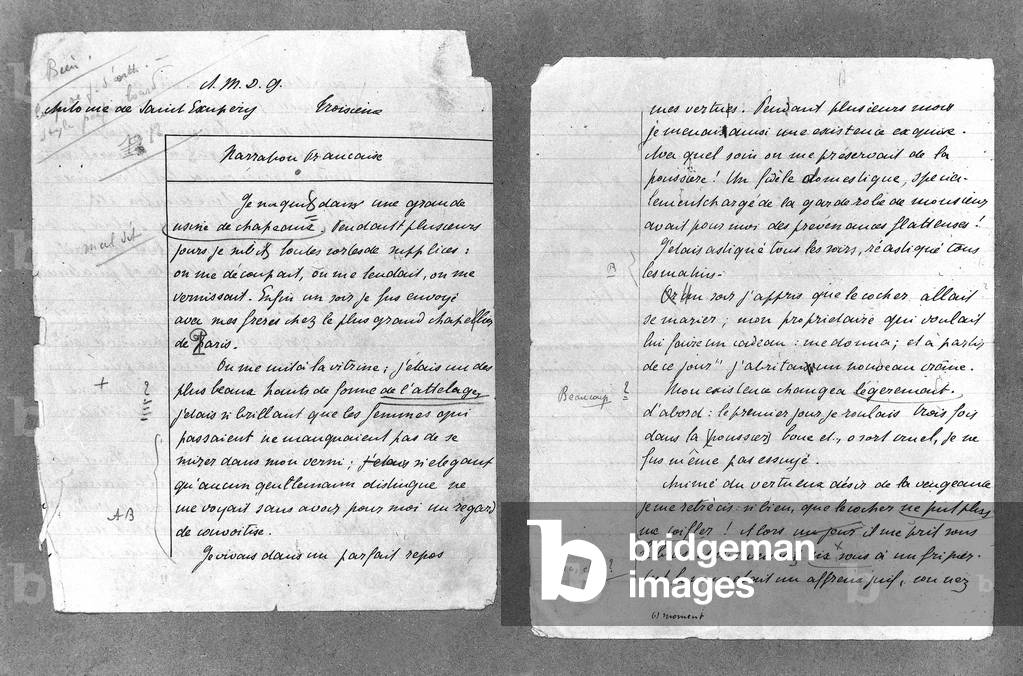 Bien!
A. M. D. G.
Antoine de Saint Exupéry Troisième
style
12
Narration Française
Je naquis dans une grande
usine de chapeaux. Pendant plusieurs
mal dit
jours je subis toutes sortes de supplices :
on me découpait, on me tendait, on me
vernissait. Enfin un soir je fus envoyé
avec mes frères chez le plus grand chapellier
de Paris.
On me mit à la vitrine ; j'étais un des
+ ?
plus beaux hauts de forme de l'attelage,
j'étais si brillant que les femmes qui
passaient ne manquaient pas de se
mirer dans mon verni ; j'étais si élégant
qu'aucun gentlemann distingué ne
AB
me voyait sans avoir pour moi un regard
de convoitise.
Je vivais dans un parfait repos
mes vertues. Pendant plusieurs mois
je menais ainsi une existence exquise.
Avec quel soin on me préservait de la
poussière ! Un fidèle domestique, spécia-
lement chargé de la garde robe de monsieur
avait pour moi des prévenances flatteuses !
J'étais astiqué tous les soirs, réastiqué tous
B
les matins.
Or un soir j'appris que le cocher allait
se marier ; mon propriétaire qui voulait
lui faire un cadeau : me donna ; et à partir
de ce jour j'abritais un nouveau crâne.
Beaucoup ?
Mon existence changea légèrement
d'abord : le premier jour je roulais trois fois
dans la poussière boue et, o sort cruel, je ne
fus même pas essuyé.
Animé du vertueux désir de la vengeance
je me rétrécis : si bien, que le cocher ne put plus
me coiffer ! Alors un jour il me prit sous
sous à un fripier.
?
était un affreux juif, au nez
(1) moment
b bridgeman
images